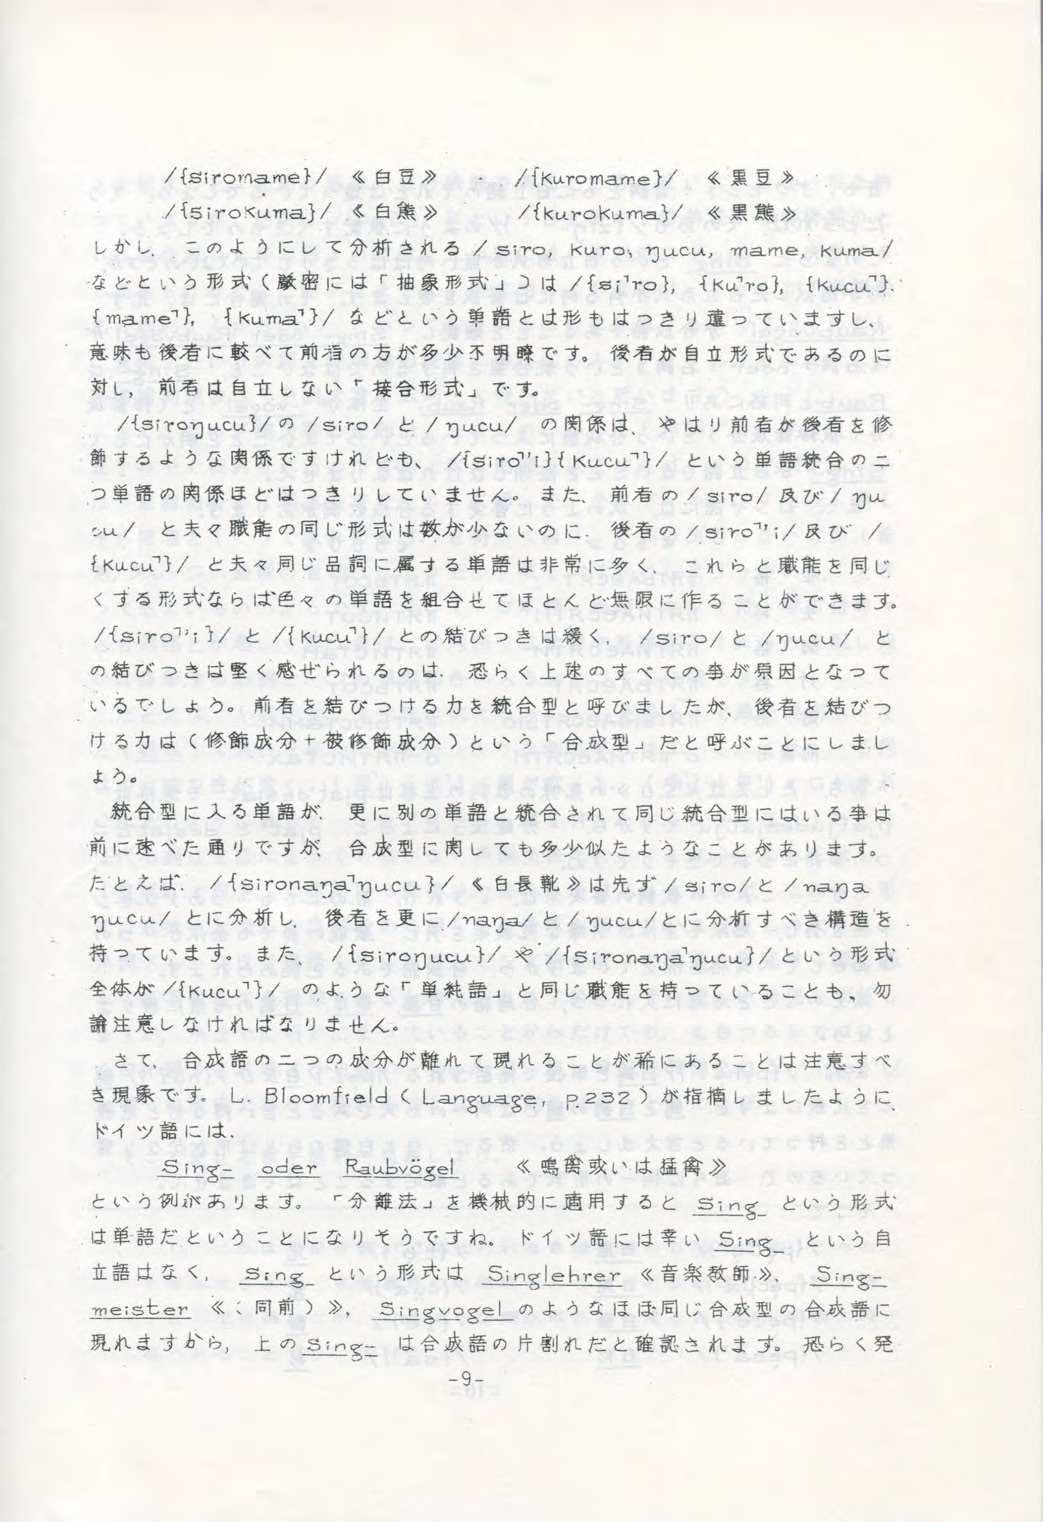 /{siromame}/ 《白豆》 /{kuromame}/ 《黒豆》
/{sirokuma}/ 《白熊》 /{kurokuma}/ 《黒熊》
しかし、このようにして分析される / siro, kuro, ŋucu, mame, kuma/
などという形式(厳密には「抽象形式」)は /{si˥ro}, {ku˥ro}, {kucu˥},
{mame˥}, {kuma˥}/ などという単語とは形もはっきり違っていますし、
意味も後者に較べて前者の方が多少不明瞭です。後者が自立形式であるのに
対し、前者は自立しない「接合形式」です。
/{siroŋucu}/の /siro/ と / ŋucu/ の関係は、やはり前者が後者を修
飾するような関係ですけれども、/{siro˥'i}{kucu˥}/ という単語統合の二
つ単語の関係ほどはつきりしていません。また、前者の / siro/ 及び / ŋu
cu/ と夫々職能の同じ形式は数が少ないのに、後者の /siro˥'i/ 及び /
{kucu˥}/ と夫々同じ品詞に属する単語は非常に多く、これらと職能を同じ
くする形式ならば色々の単語を組合せてほとんど無限に作ることができます。
/{siro˥'i}/ と /{kucu˥}/ との結びつきは緩く、/siro/ と /ŋucu/ と
の結びつきは堅く感ぜられるのは、恐らく上述のすべての事が原因となって
いるでしょう。前者を結びつける力を統合型と呼びましたが、後者を結びつ
ける力は(修飾成分+被修飾成分)という「合成型」だと呼ぶことにしまし
ょう。
統合型に入る単語が、更に別の単語と統合されて同じ統合型にはいる事は
前に述べた通りですが、合成型に関しても多少似たようなことがあります。
たとえば、/{sironaŋa˥ŋucu}/ 《白長靴》は先ず / siro/と / naŋa
ŋucu/ とに分析し、後者を更に /naŋa/と / ŋucu/とに分析すべき構造を
持っています。また、/{siroŋucu}/ や /{sironaŋa˥ŋucu}/という形式
全体が /{kucu˥}/ のような「単純語」と同じ職能を持っていることも、勿
論注意しなければなりません。
さて、合成語の二つの成分が離れて現れることが稀にあることは注意すべ
き現象です。L. Bloomfield ( Language, p.232 ) が指摘しましたように、
ドイツ語には、
Sing- oder Raubvögel 《鳴禽或いは猛禽》
という例があります。「分離法」を機械的に適用すると Sing という形式
は単語だということになりそうですね。ドイツ語には幸い Sing という自
立語はなく、Sing という形式は Singlehrer 《音楽教師》, Sing-
meister 《(同前)》, Singvogel のようなほぼ同じ合成型の合成語に
現れますから、上の Sing- は合成語の片割れだと確認されます。恐らく発
-9-